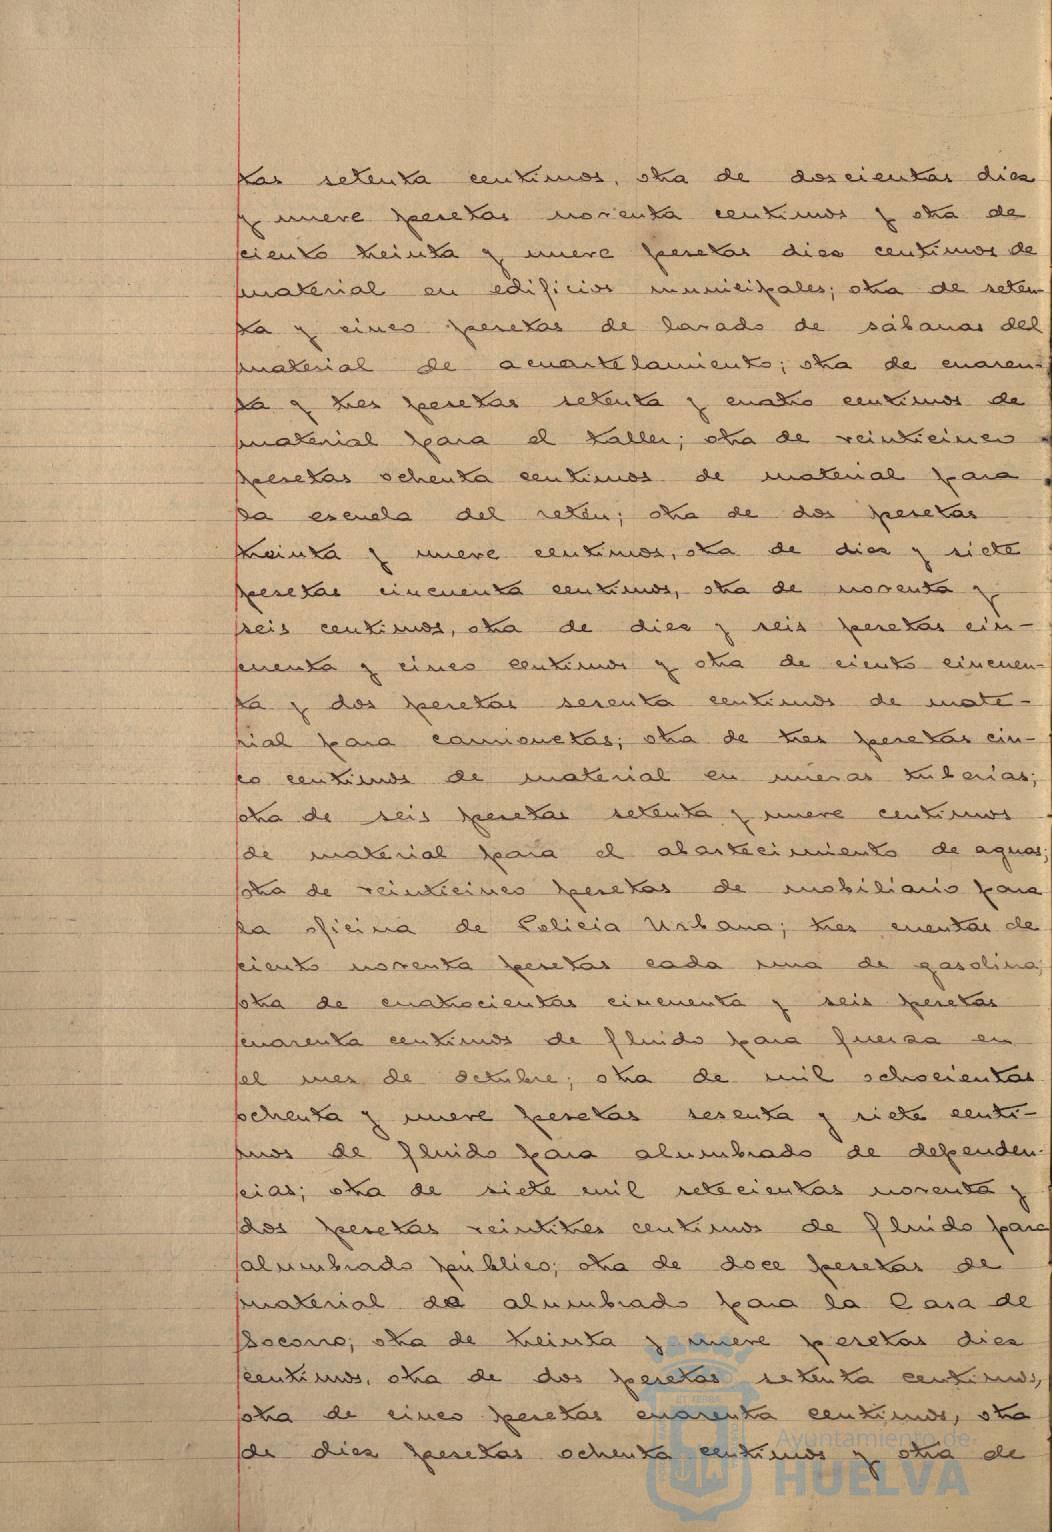 tas setenta centimos, otra de doscientas diez
y nueve pesetas noventa centimos y otra de
ciento treinta y nueve pesetas diez centimos de
material en edificios municipales; otra de seten-
ta y cinco pesetas de lavado de sábanas del
material de acuartelamiento; otra de cuaren-
ta y tres pesetas setenta y cuatro centimos de
material para el taller; otra de veinticinco
pesetas ochenta centimos de material para
la escuela del retén; otra de dos pesetas
treinta y nueve centimos, otra de diez y siete
pesetas cincuenta centimos, otra de noventa y
seis centimos, otra de diez y seis pesetas cin-
cuenta y cinco centimos y otra de ciento cincuen-
ta y dos pesetas sesenta centimos de mate-
rial para camionetas; otra de tres pesetas cin-
co centimos de material en nuevas tuberias;
otra de seis pesetas setenta y nueve centimos
de material para el abastecimiento de aguas;
otra de veinticinco pesetas de mobiliario para
la oficina de Policia Urbana; tres cuentas de
ciento noventa pesetas cada una de gasolina;
otra de cuatrocientas cincuenta y seis pesetas
cuarenta centimos de fluido para fuerza en
el mes de octubre; otra de mil ochocientas
ochenta y nueve pesetas sesenta y siete centi-
mos de fluido para alumbrado de dependen-
cias; otra de siete mil setecientas noventa y
dos pesetas veintitres centimos de fluido para
alumbrado público; otra de doce pesetas de
material de alumbrado para la Casa de
Socorro; otra de treinta y nueve pesetas diez
centimos, otra de dos pesetas setenta centimos,
otra de cinco pesetas cuarenta centimos, otra
de diez pesetas ochenta centimos y otra de
Ayuntamiento de
HUELVA